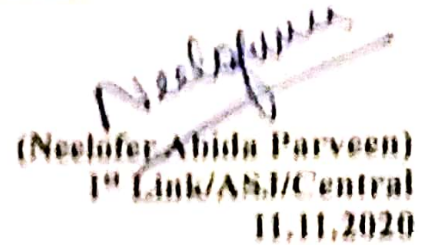 Neelofer
(Neelofer Abida Parveen)
1st Link/ASJ/Central
11.11.2020